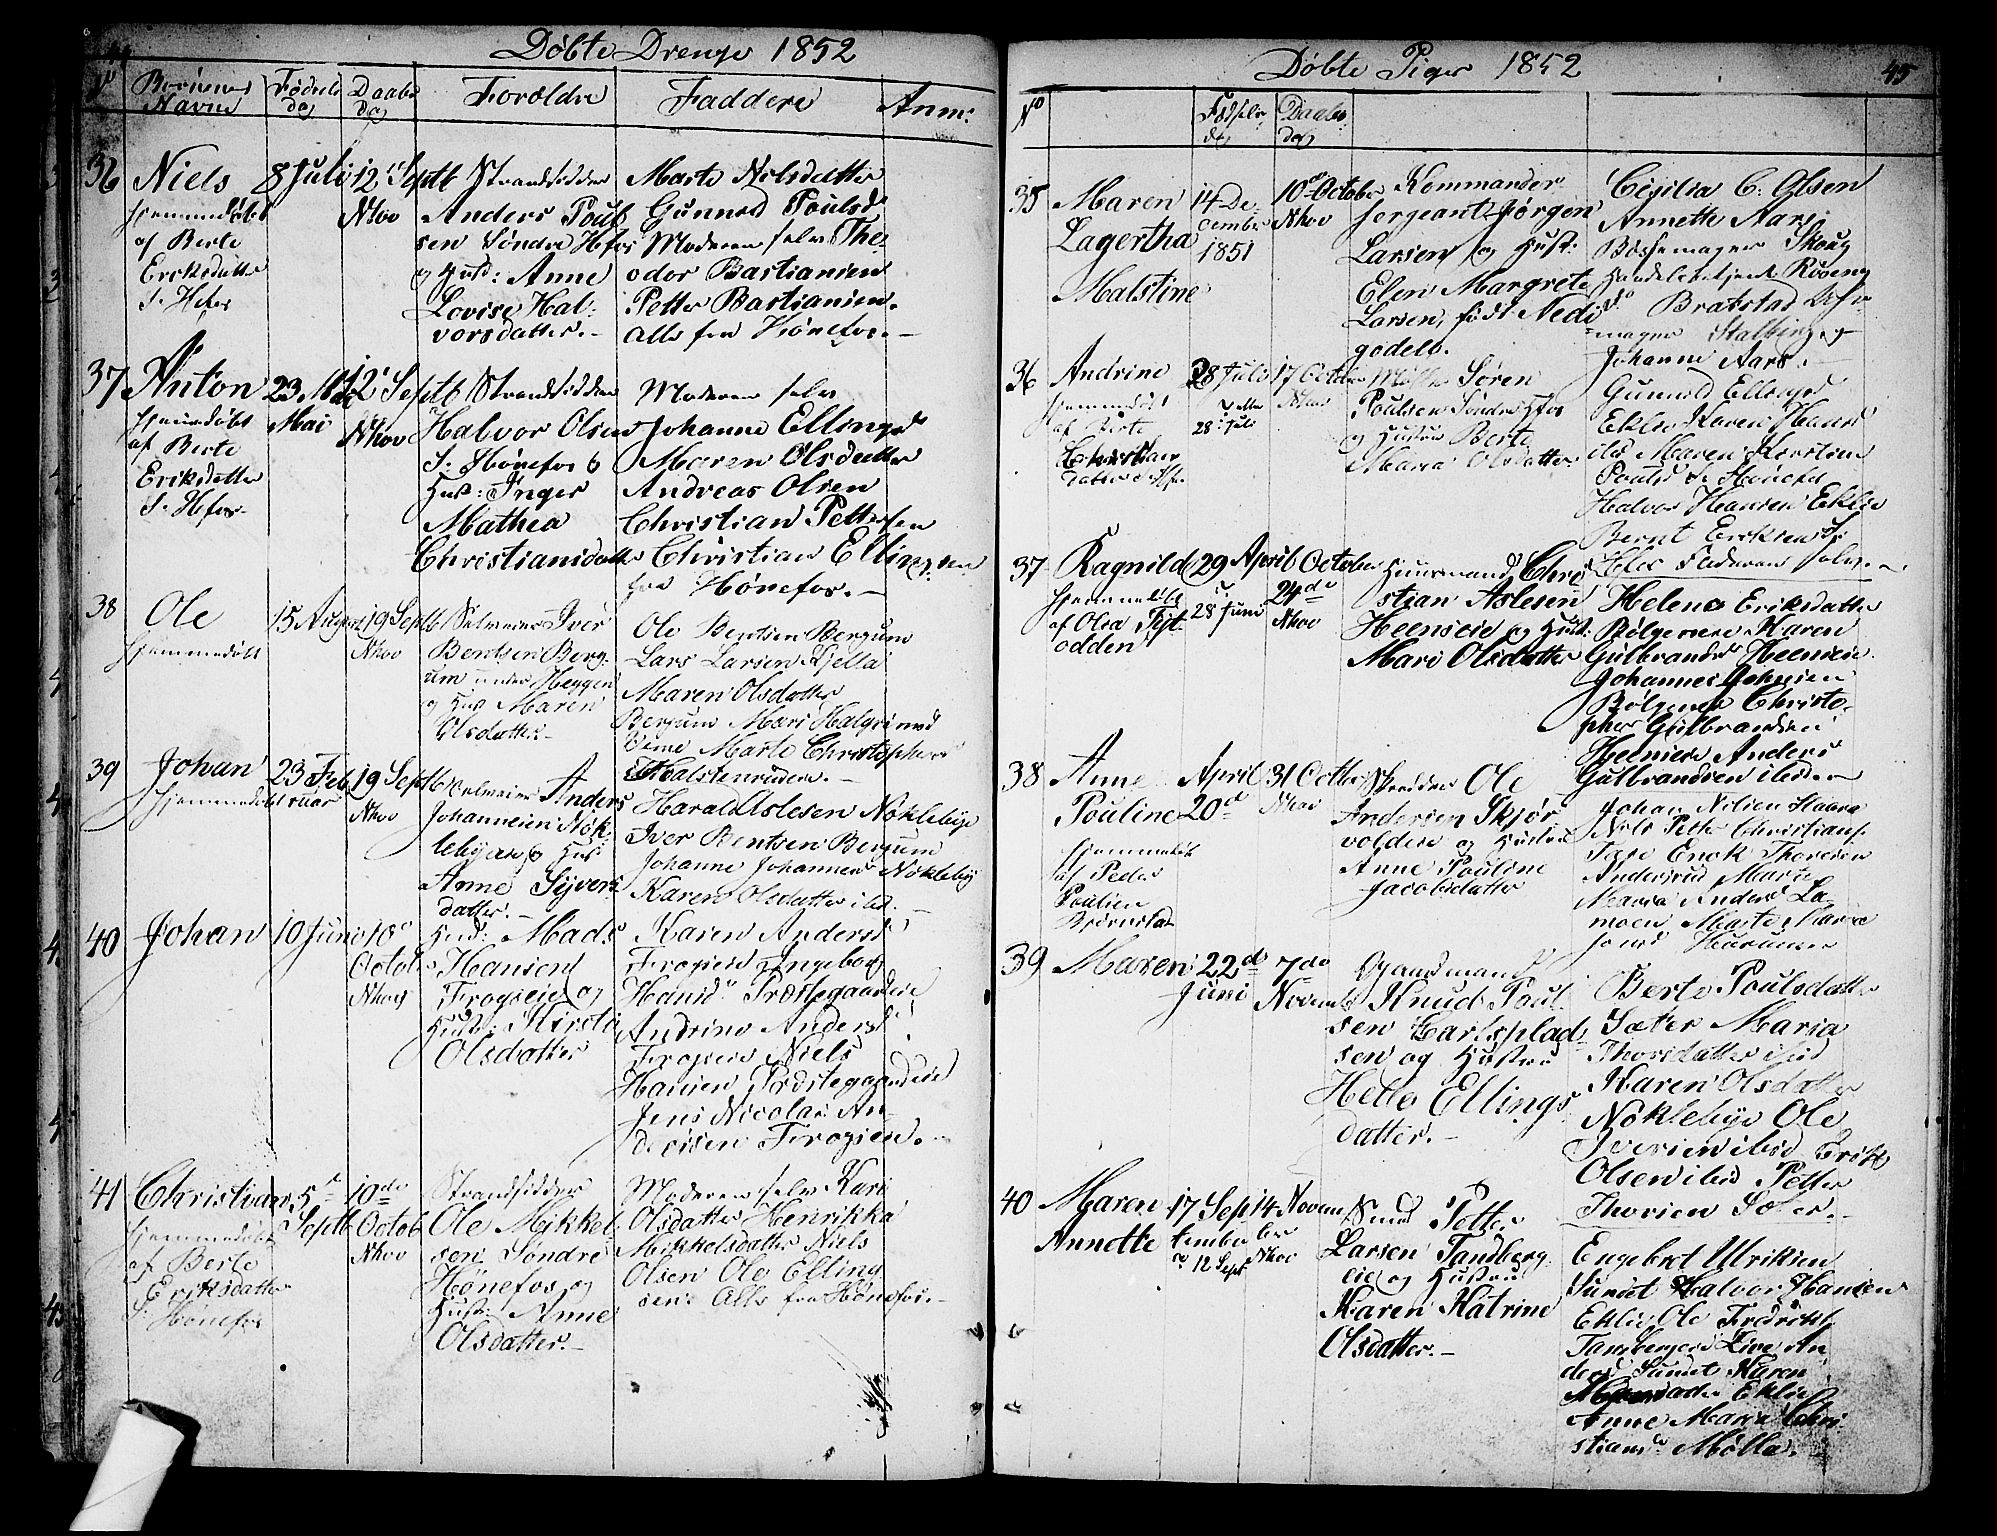 44
Döbte Drenge 1852
No
Börnenes
Navne
Födsels
dag
Daabs
dag
Forældre
Faddere
Anm:
36
Niels
hjemmedöbt
af Berte
Eriksdatter
S. Hefos
8 Juli
12 Septb
Nkov
Strandsidder
Anders Poul
sen Söndre Hefos
og Hust: Anne
Lovise Hal-
vorsdatter.-
Marte Nilsdatter
Gunned Poulsd
Moderen selv The-
odor Bastiansen
Petter Bastiansen.
alle fra Hönefos.-
37
Anton
hjemmedöbt
af Berte
Eriksdatter
S. Hefos
23
Mai
12 Septb
Nkov
Strandsidder
Halvor Olsen
S: Hönefos og
Hust: Inger
Mathea
Christiansdatter
Moderen selv
Johanne Ellingsd
Maren Olsdatter
Andreas Olsen
Christian Pettersen
Christian Ellingsen
fra Hönefos.-
38
Ole
hjemmedöbt
15 August
19 Septb
Nkov
Selveier Iver
Bentsen Berg-
um under Heggen
og Hust Maren
Olsdatter.-
Ole Bentsen Bergum
Lars Larsen Kjella
Maren Olsdatter
Bergum Mari Halgrimsd
Marte Christophersd
Halstenrudeie.-
39
Johan
hjemmedöbt
23 Feb
ruar
19 Septb
Nkov
Selveier Anders
Johannesen Nök-
lebye og Hust
Anne Syvers
datter.-
Harald Aslesen Nöklebye
Iver Bentsen Bergum
Johanne Johannesd Nöklebye
Karen Olsdatter ibid.
40
Johan
10 Juni
10
Octob
Nkov
Husm: Mads
Hansen
Frogseie og
Hust: Kirsti
Olsdatter
Karen Andersd
Frogseie Ingeborg
Hansd Præstegaardseie
Andrine Andersd
Frogseie Niels
Hansen Præstegaardseie
Jens Nicolai An-
dersen Frogseie.
41
Christian
hjemmedöbt
af Berte
Eriksdatter
S: Hönefos
5
Septb
10de
Octob
Nkov
Strandsidder
Ole Mikkel
sen Söndre
Hönefos og
Hust: Anne
Olsdatter.-
Moderen selv Kari
Olsdatter Henrikka
Mikkelsdatter Niels
Olsen Ole Elling
sen: Alle fra Hönefos.-
Döbte Piger 1852
45
No
Fødsels-
dag
Daabs
dag
35
Maren
Lagertha
Malstine
14 De-
cember
1851
10 October
Nkov
Kommander
Sergeant Jörgen
Larsen og Hust:
Elen Margrete
Larsen, født Nedi
godels.
Cesilia C: Olsen
Annette Aars
Bössemager Skoug
Handelsbetjent
Bratstad
mager
Johanne Aars.-
36
Andrine
hjemmedöbt
af Berte
Christian
datter S. Hfos
28 Juli
28 Juli
17 October
Nkov
Møller Sören
Poulsen Söndre Hfos
og Hustru Berte
Maria Olsdatter
Gunnild Ellingsd
Eklie Karen Hansd
ibd Maren Kirstine
Poulsd S. Hönefos
Halvor Hansen Eklie
Bernt Eriksen S:
Hefos Faderen selv.-
37
Ragnild
hjemmedöbt
af Olea Tejt-
odden
29 April
28 Juni
October
24de
Nkov
Huusmand Chri
stian Aslesen
Heenseie og Hust:
Mari Olsdatter
Helene Eriksdatter
Bölgenseie Karen
Gulbrandsd Heenseie
Johannes Johnsen
Bölgenseie Christo-
pher Gulbrandsen
Heenseie Anders
Gulbrandsen ibid.-
38
Anne
Pouline
hjemmedöbt
af Peder
Poulsen
Bjørnstad
April
20d
31 Octbr
Nkov
Skredder Ole
Andersen Skjör-
voldeie og Hustru
Anne Pouline
Jacobsdatter
Johan Nilsen Haave
Nils Petter Christians
Enok Thoresen
Andersrud Marte
Maria Andersd La-
moen Marte Maria
39
Maren
22d
Juni
7de
Novemb
Gaardmand
Knud Poul-
sen Carlsplad-
sen og Hustru
Helle Ellings
datter.-
Berte Poulsdatter
Sæter Maria
Thorsdatter ibid
Karen Olsdatter
Nöklebye Ole
Iversen ibid Erik
Olsen ibid Petter
Thorsen Sæter.-
40
Maren
Annette
17 Sep
tember
12 Sept
14 Novem
ber
Nkov
Smed Petter
Larsen Tandberg-
eie og Hustru
Karen Katrine
Olsdatter.-
Engebret Ulriksen
Sundet Halvor Hansen
Eklie Ole Fredriks
Tandbergeie Live An
dersd Sundet Karen
Eklie
Anne Maria Chri-
stiansd Mölla.-